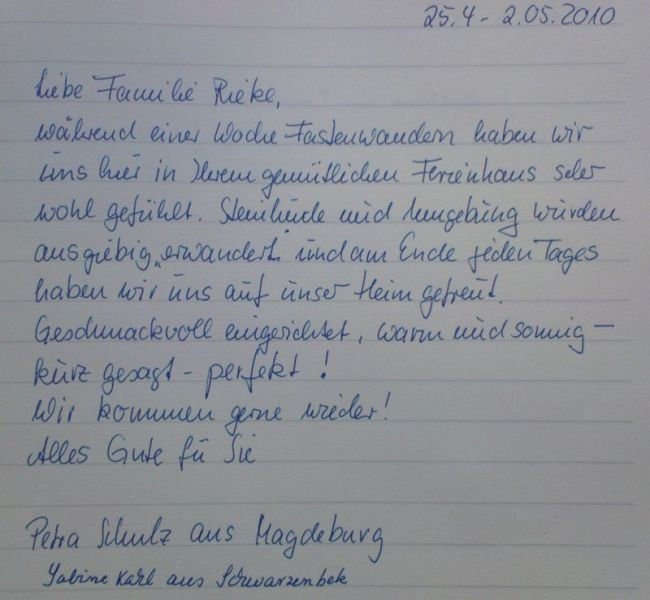 25.4 - 2.05.2010
Liebe Familie Rieke,
während einer Woche Fastenwandern haben wir
uns hier in Ihrem gemütlichen Ferienhaus sehr
wohl gefühlt. Steinhude und Umgebung wurden
ausgiebig „erwandert“ und am Ende jeden Tages
haben wir uns auf unser Heim gefreut.
Geschmackvoll eingerichtet, warm und sonnig –
kurz gesagt - perfekt!
Wir kommen gerne wieder!
Alles Gute für Sie
Petra Schulz aus Magdeburg
Sabine Karl aus Schwarzenbek